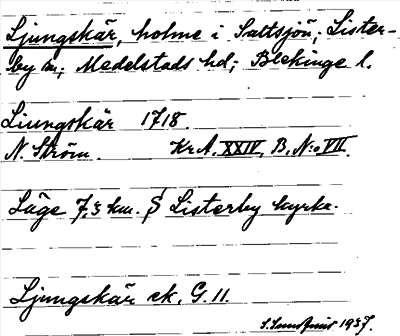 Ljungskär, holme i Saltsjön; Lister-
by sn; Medelstads hd; Blekinge l.
Liungskär 1718.
N. Ström. Kr. A. XXIV, B, N:o VII.
Läge 7,5 km. S Listerby kyrka.
Ljungskär ek. G. 11.
1937.